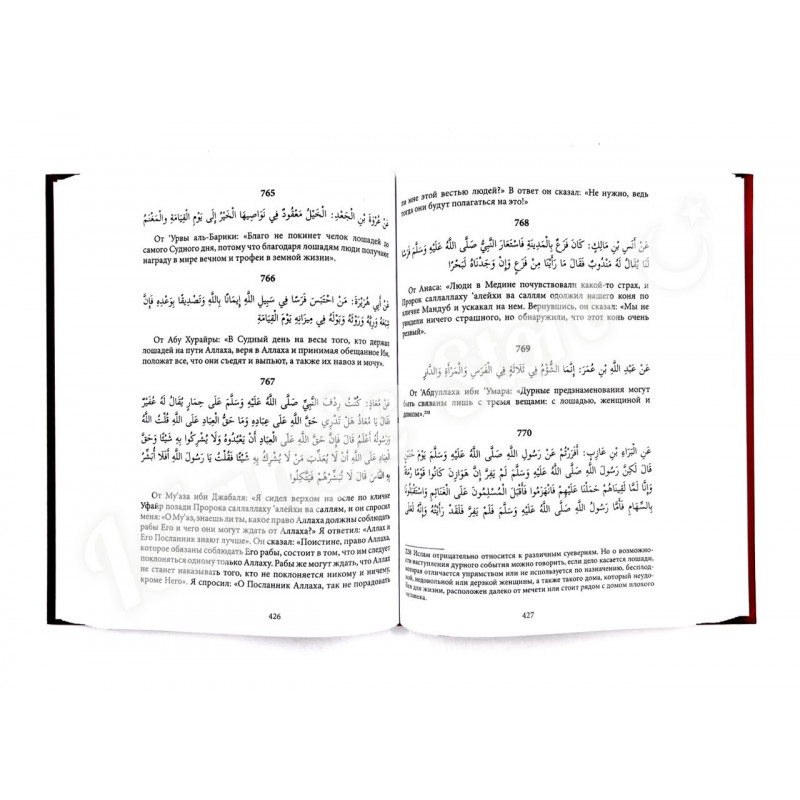 765
عَنْ عُرْوَةَ بْنِ الْجَعْدِ: الْخَيْلُ مَعْقُودٌ فِي نَوَاصِيهَا الْخَيْرُ إِلَى يَوْمِ الْقِيَامَةِ والْمَغْنَمُ
От 'Урвы аль-Барики: «Благо не покинет челок лошадей до
самого Судного дня, потому что благодаря лошадям люди получают
награду в мире вечном и трофеи в земной жизни».
766
عَنْ أَبِي هُرَيْرَةَ: مَنْ احْتَبَسَ فَرَسًا فِي سَبِيلِ اللَّهِ إِيمَانًا بِاللَّهِ وَتَصْدِيقًا بِوَعْدِهِ فَإِنَّ
شِبَعَهُ وَرِيَّهُ وَرَوْثَهُ وَبَوْلَهُ فِي مِيزَانِهِ يَوْمَ الْقِيَامَةِ
От Абу Хурайры: «В Судный день на весы того, кто держал
лошадей на пути Аллаха, веря в Аллаха и принимая обещанное Им,
положат все, что они съедят и выпьют, а также их навоз и мочу».
767
عَنْ مُعَاذٍ: كُنْتُ رِدْفَ النَّبِيِّ صَلَّى اللَّهُ عَلَيْهِ وَسَلَّمَ عَلَى حِمَارٍ يُقَالُ لَهُ عُفَيْرٌ
فَقَالَ يَا مُعَاذُ هَلْ تَدْرِي حَقَّ اللَّهِ عَلَى عِبَادِهِ وَمَا حَقُّ الْعِبَادِ عَلَى اللَّهِ قُلْتُ اللَّهُ
وَرَسُولُهُ أَعْلَمُ قَالَ فَإِنَّ حَقَّ اللَّهِ عَلَى الْعِبَادِ أَنْ يَعْبُدُوهُ وَلَا يُشْرِكُوا بِهِ شَيْئًا وَحَقَّ
الْعِبَادِ عَلَى اللَّهِ أَنْ لَا يُعَذِّبَ مَنْ لَا يُشْرِكُ بِهِ شَيْئًا فَقُلْتُ يَا رَسُولَ اللَّهِ أَفَلَا أُبَشِّرُ
بِهِ النَّاسَ قَالَ لَا تُبَشِّرْهُمْ فَيَتَّكِلُوا
От Му'аза ибн Джабаля: «Я сидел верхом на осле по кличке
Уфайр позади Пророка саллаллаху 'алейхи ва саллям, и он спросил
меня: «О Му'аз, знаешь ли ты, какое право Аллаха должны соблюдать
рабы Его и чего они могут ждать от Аллаха?» Я ответил: «Аллах и
Его Посланник знают лучше». Он сказал: «Поистине, право Аллаха,
которое обязаны соблюдать Его рабы, состоит в том, что им следует
поклоняться одному только Аллаху. Рабы же могут ждать, что Аллах
не станет наказывать того, кто не поклоняется никому и ничему,
кроме Него». Я спросил: «О Посланник Аллаха, так не порадовать
426
ли мне этой вестью людей?» В ответ он сказал: «Не нужно, ведь
тогда они будут полагаться на это!»
768
عَنْ أَنَسِ بْنِ مَالِكٍ: كَانَ فَزَعٌ بِالْمَدِينَةِ فَاسْتَعَارَ النَّبِيُّ صَلَّى اللَّهُ عَلَيْهِ وَسَلَّمَ فَرَسًا
لَنَا يُقَالُ لَهُ مَنْدُوبٌ فَقَالَ مَا رَأَيْنَا مِنْ فَزَعٍ وَإِنْ وَجَدْنَاهُ لَبَحْرًا
От Анаса: «Люди в Медине почувствовали какой-то страх, и
Пророк саллаллаху 'алейхи ва саллям одолжил нашего коня по
кличке Мандуб и ускакал на нем. Вернувшись, он сказал: «Мы не
увидели ничего страшного, но обнаружили, что этот конь очень
резвый».
769
عَنْ عَبْدِ اللَّهِ بْنِ عُمَرَ: إِنَّمَا الشُّؤْمُ فِي ثَلَاثَةٍ فِي الْفَرَسِ وَالْمَرْأَةِ وَالدَّارِ
От 'Абдуллаха ибн 'Умара: «Дурные предзнаменования могут
быть связаны лишь с тремя вещами: с лошадью, женщиной и
домом».²²⁸
770
عَنِ الْبَرَاءِ بْنِ عَازِبٍ: أَفَرَرْتُمْ عَنْ رَسُولِ اللَّهِ صَلَّى اللَّهُ عَلَيْهِ وَسَلَّمَ يَوْمَ حُنَيْنٍ
قَالَ لَكِنَّ رَسُولَ اللَّهِ صَلَّى اللَّهُ عَلَيْهِ وَسَلَّمَ لَمْ يَفِرَّ إِنَّ هَوَازِنَ كَانُوا قَوْمًا رُمَاةً
وَإِنَّا لَمَّا لَقِينَاهُمْ حَمَلْنَا عَلَيْهِمْ فَانْهَزَمُوا فَأَقْبَلَ الْمُسْلِمُونَ عَلَى الْغَنَائِمِ وَاسْتَقْبَلُونَا
بِالسِّهَامِ فَأَمَّا رَسُولُ اللَّهِ صَلَّى اللَّهُ عَلَيْهِ وَسَلَّمَ فَلَمْ يَفِرَّ فَلَقَدْ رَأَيْتُهُ وَإِنَّهُ لَعَلَى
228 Ислам отрицательно относится к различным суевериям. Но о возможно-
сти наступления дурного события можно говорить, если дело касается лошади,
которая отличается упрямством или не используется по назначению, бесплод-
ной, недовольной или дерзкой женщины, а также такого дома, который неудо-
бен для жизни, расположен далеко от мечети или стоит рядом с домом плохого
человека.
427